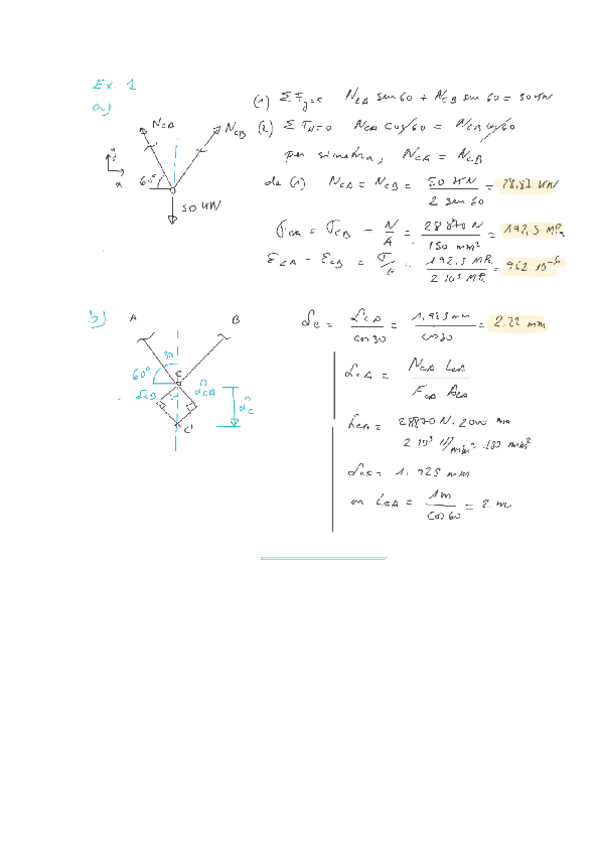 Ex. 1
a)
(1) ΣFy=0 NCA sen 60 + NCB sen 60 = 50 kN
NCA
NCB
(2) ΣFx=0 NCA cos 60 = NCB cos 60
y
x
60°
50 kN
per simetria, NCA = NCB
de (1) NCA = NCB = 50 kN / 2 sen 60 = 28,87 kN
σCA = σCB = N/A = 28870 N / 150 mm² = 192,5 MPa
εCA = εCB = σ/E = 192.5 MPa / 2 10⁵ MPa = 962 10⁻⁶
b)
A
B
30
60°
C
δCB
δCA
δC
C'
δC = δCA / cos 30 = 1.925 mm / cos 30 = 2.22 mm
δCA = NCA LCA / ECA ACA
28870 N · 2000 mm / 2 10⁵ N/mm² · 150 mm²
1.925 mm
on LCA = 1m / cos 60 = 2 m